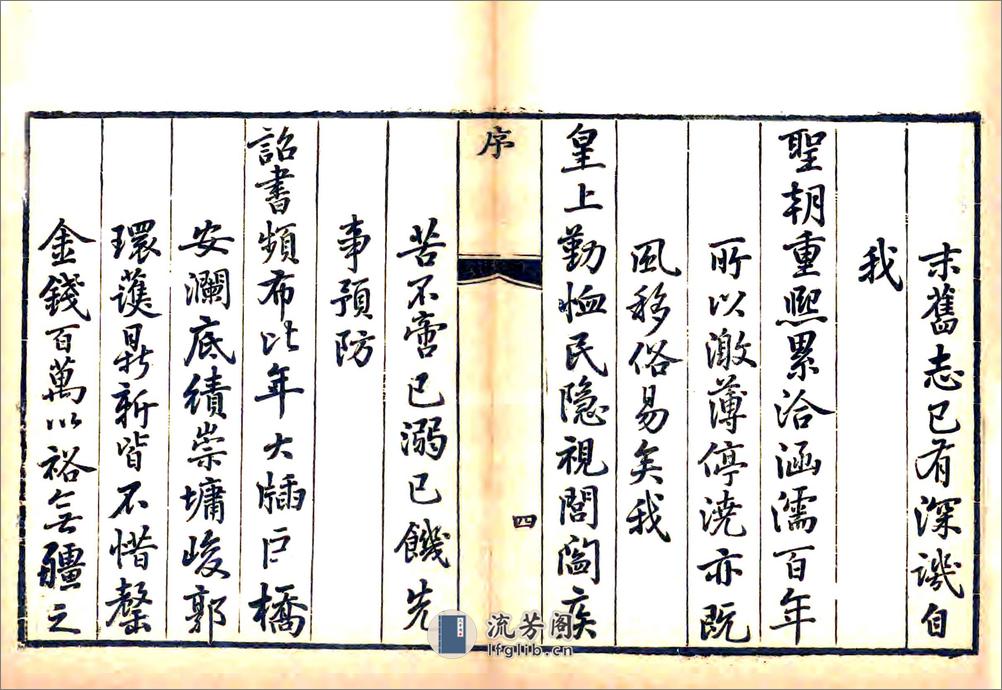 末舊志已有深譏自
我
聖朝重熙累洽涵濡百年
所以激薄停澆亦既
風移俗易矣我
皇上勤恤民隱視閭閻疾
序
四
苦不啻已溺已饑先
事預防
詔書頻布比年大牐巨橋
安瀾底績崇墉峻郭
環護鼎新皆不惜罄
金錢百萬以裕無疆之
流芳阁
lfglib.cn